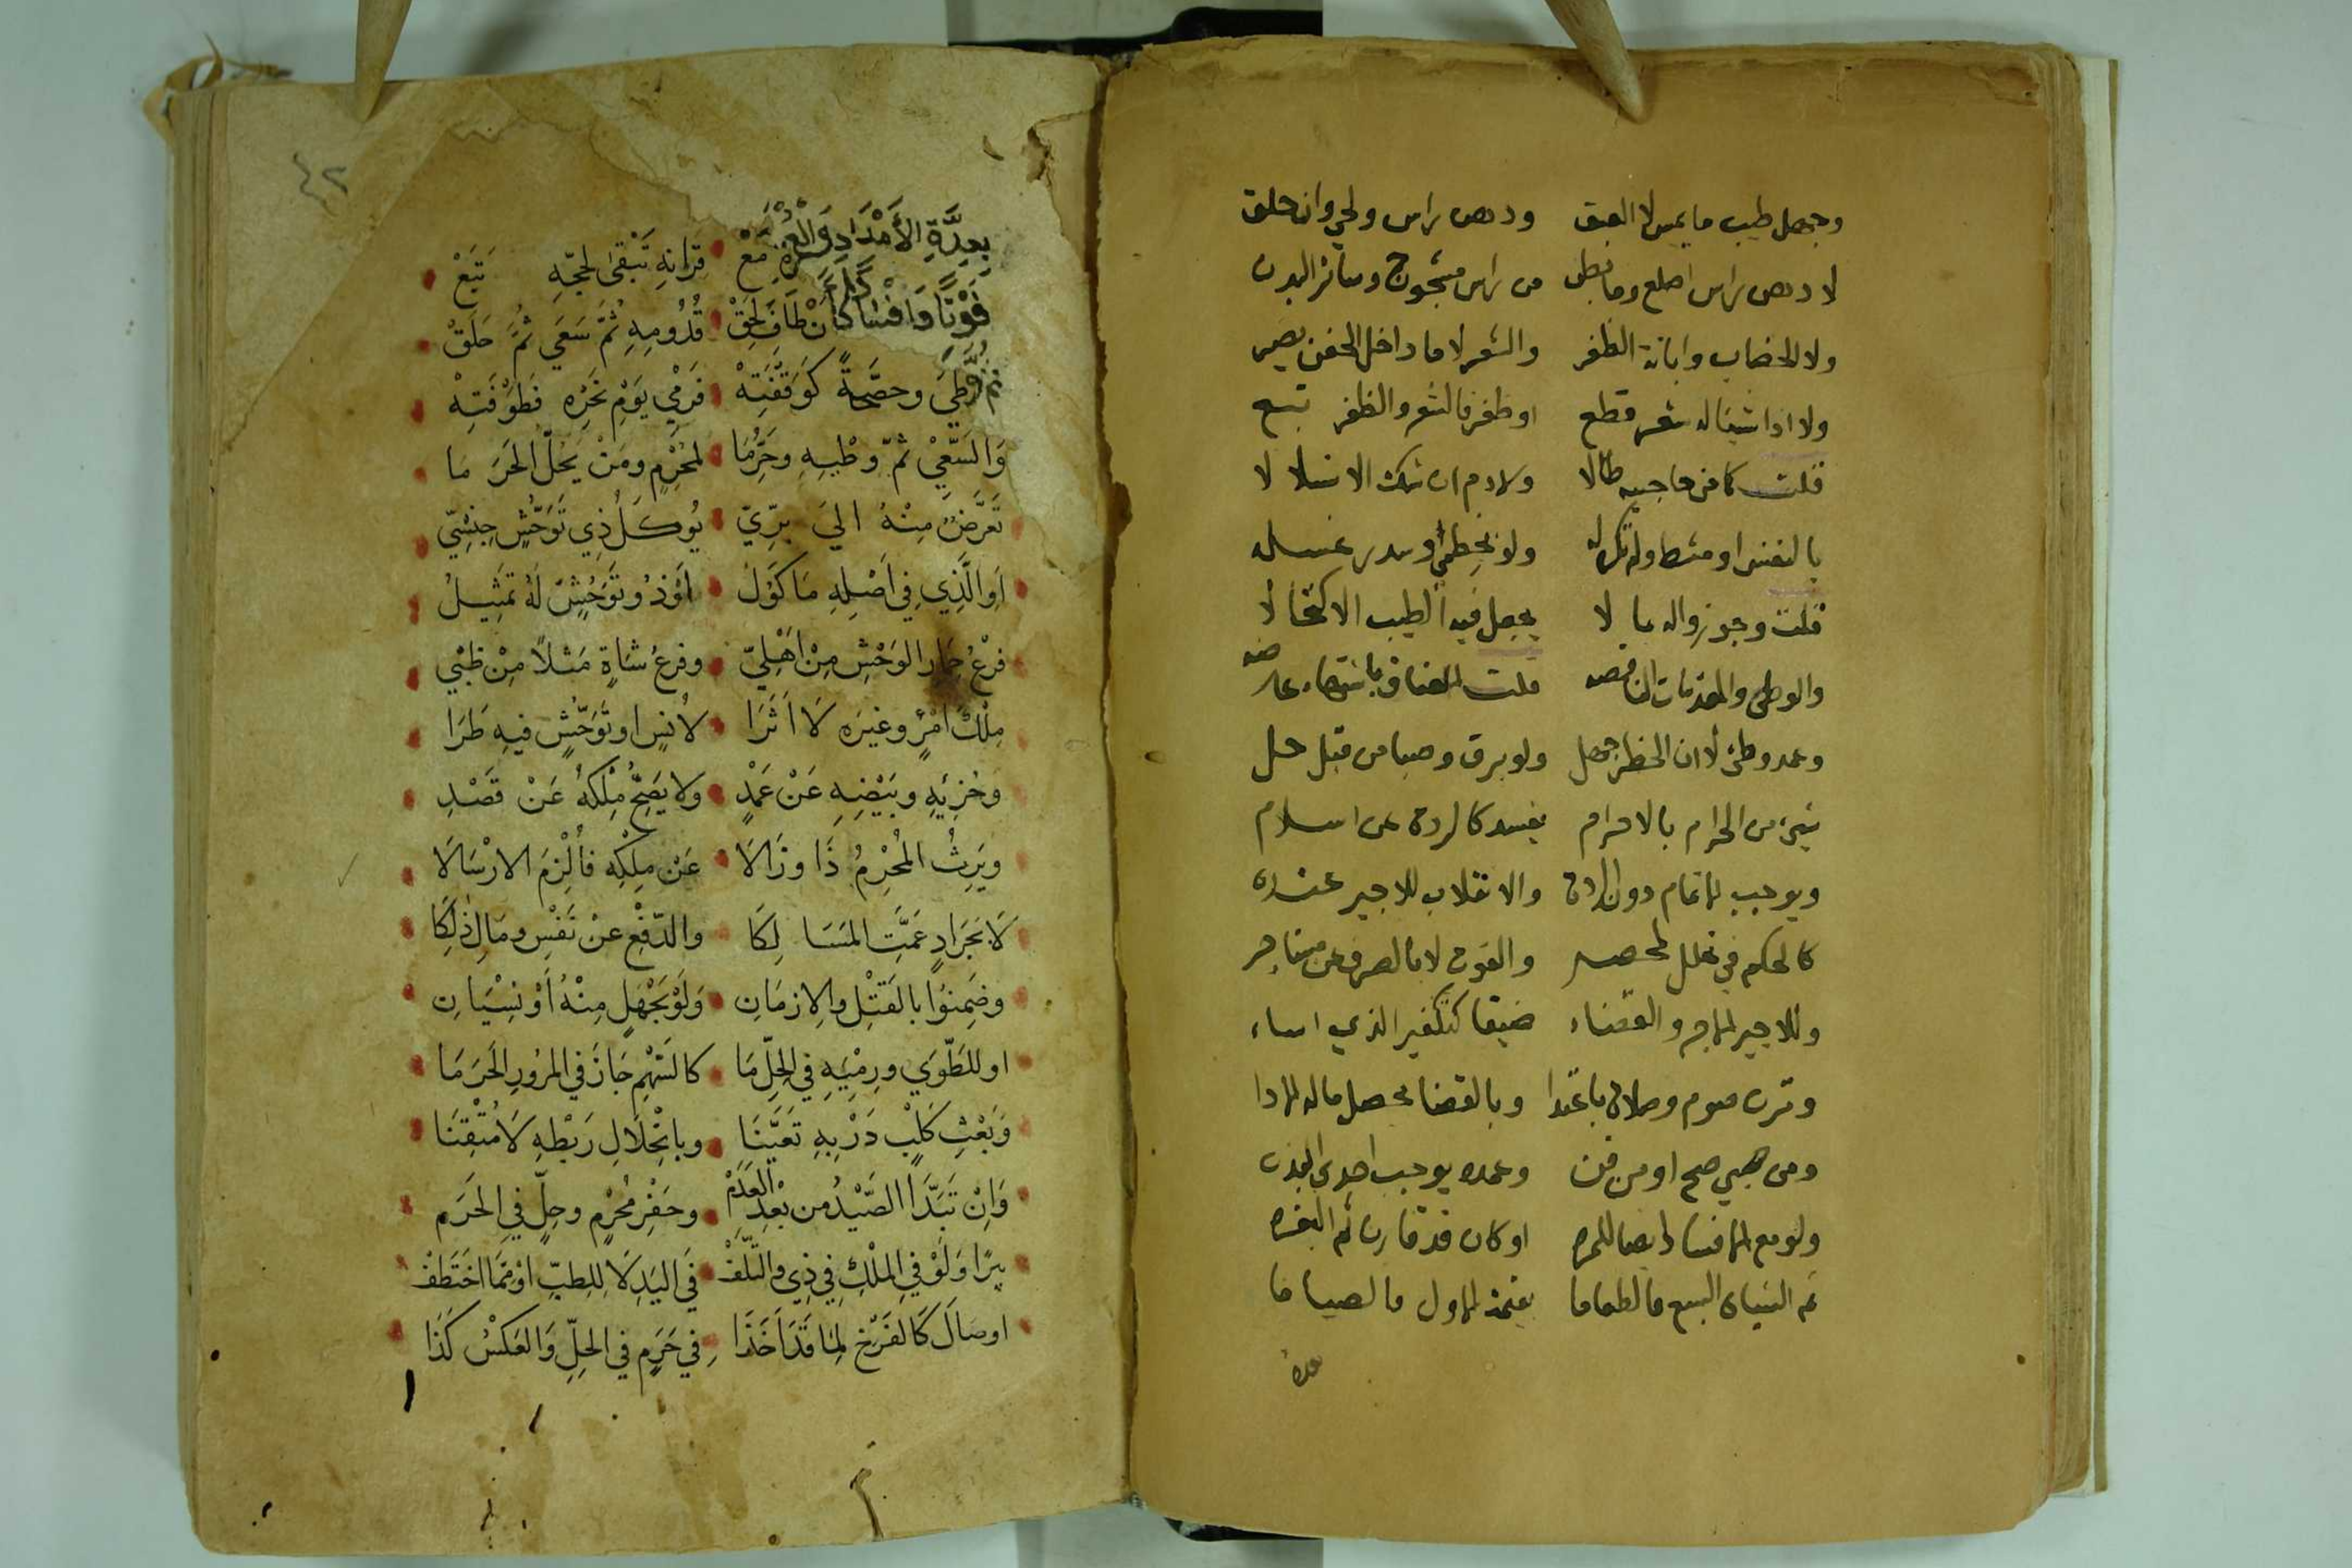 وجهل طيب ما يمس لا العبق ودهن راس ولحى وان حلق
لا دهن راس اصلع وما بطن من راس مشجوج وسائر البدن
ولا الخضاب وابانة الظفر والشعر لا ما داخل الجفن بصر
ولا اذا شيئا له شعر قطع او ظفر فالشعر والظفر تبع
قلت كما من حاجبيه طالا ولا دم ان شك الانسلالا
قلت وجوز واله بما لا يحصل فيه الطيب الاكتحالا
والوطئ والمقدمات الناقضه قلت العناق باشتهاء عارضه
وعمد وطئ لا ان الحظر جهل ولو برق وصبا من قبل حل
شيئ من الحرام بالاحرام يفسد كالردة عن اسلام
ويوجب الاتمام دون الردة والانقلاب للاجير عنده
كالحكم في تحلل المحصر والفوت لا بالصرف عن مستاجر
وللاجير الاجر والقضاء ضيقا كتكفير الذي اساء
وترك صوم وصلاة باعتدا وبالقضا يحصل ماله الادا
ومن صبي صح او من قن وعمده يوجب احدى البدن
ولو مع الافساد ايضا للمره او كان قد قارن ثم البقره
ثم الشياه السبع فالطعاما بقيمة الاول فالصياما
بعدة
بِعِدَّةِ الأَمْدَادِ وَالْعُمْرَةُ مَعْ قِرَانِهِ تَبْقى لحجّهِ تَبَعْ
فَوْتًا وَافْسَادًا كَأَنْ طَافَ لِحَقْ قُدُومِهِ ثُمَّ سَعَى ثُمَّ حَلَقْ
ثُمَّ وطي وصحّةً كَوَقْفَتِهْ فَرمْيِ يَوْمِ نَحْرِهِ فَطَوْفَتِهْ
وَالسَّعْيْ ثمّ وطْيِهِ وحَرُمَا لمُحْرِمٍ ومَنْ يَحُلُّ الحَرَمَا
تَعَرَّضٌ مِنْهُ اليَ بَرِّيّ يُوكَلُ ذِي تَوَحُّشٍ جِنْسِيّ
اَوِ الَّذِي فِي اَصْلِهِ مَاكَوْلُ اَوْ ذُو تَوَحُّشٍ لَهُ تَمْثِيلُ
فَرْعُ حِمَارِ الوَحْشِ مِنْ اَهْلِيّ وفرعُ شَاةٍ مَثَلاً مِنْ ظَبْيِ
مِلْكَ امْرٍ وغيرَه لَا اَثَرَا لأُنسٍ او تَوَحُّشٍ فيهِ طَرَا
وجُزئِهِ وبَيْضِهِ عَنْ عَمْدِ ولا يَصِحُّ مِلْكُهُ عَنْ قَصْدِ
ويَرِثُ المُحْرِمُ ذَا وزَالَا عَنْ مِلْكِهِ فأُلْزِمَ الارْسَالَا
لَا بجَرَادٍ عَمَّتِ المَسَالِكَا والدّفْعِ عنْ نَفْسٍ ومَالٍ ذلِكَا
وضَمِنُوا بالقَتْلِ والازمَانِ وَلَوْ بجَهْلٍ مِنْهُ أَوْ نِسْيَانِ
او للطّوَى ورمْيِهِ فِي الحِلِّ مَا كالسَّهْمِ جَازَ فِي المُرُورِ الحَرَمَا
وَبَعْثِ كَلْبٍ دَرْبِهِ تَعَيَّنَا وبانْحِلَالِ رَبْطِهِ لَا مُتْقِنَا
وَاِنْ تَبَدَّا الصَّيْدُ مِن بَعْدِ العَدَمْ وحَفْرِ مُحْرِمٍ وحِلٍّ فِي الحَرَم
بِيرًا وَلَوْ فِي المِلْكِ فِي ذِي والتّلَفْ فِي اليَدِ لَا لِلطِبِّ اوْ مَمَّا اخْتَطَفْ
او صَالَ كَالفَرْخِ لِمَا قَدْ اَخَذَا فِي حَرَمٍ فِي الحِلِّ وَالعَكْسُ كَذَا